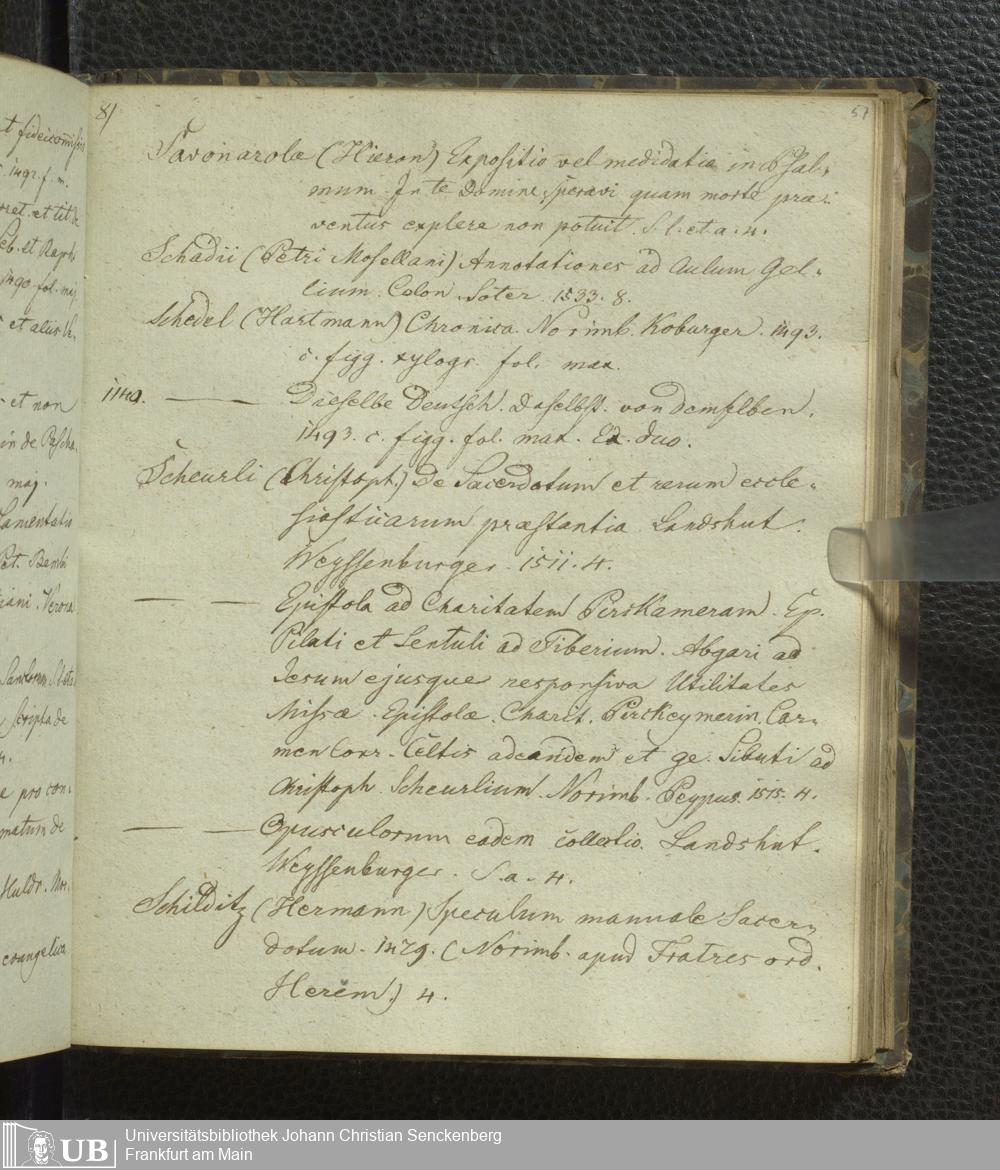 t fideicom̄iss
1492. f. m.
et. et tit de
Leb. et Rapt
1490 fol. maj.
et aliis
et non
in de Pascha.
maj.
Lamentatio
Pet. Bembi
iani. Verona
Sanctorum
scripta de
4.
e pro con:
matum de
Huldr.
evangelica
81
57
Savonarolæ (Hieron) Expositio vel medidatia in Psal:
mum. In te Domine, speravi quam morte præ:
ventus explere non potuit. S. l. et a. 4.
Schadii (Petri Mosellani) Annotationes ad Aulum Gel:
lium. Colon. Soter. 1533. 8.
Schedel (Hartmann) Chronica. Norimb. Koburger. 1493.
c. figg. xylogr. fol. max.
1140. — Dieselbe Deutsch. Daselbst. von demselben.
1493. c. figg. fol. max. Ex. duo.
Scheurli (Christoph.) De Sacerdotum et rerum eccle:
siasticarum præstantia. Landshut.
Weyssenburger. 1511. 4.
— — Epistola ad Charitatem Pirskameram. Ep.
Pilati et Lentuli ad Tiberium. Abgari ad
Jesum ejusque responsiva Utilitates
Missæ. Epistolæ. Charit. Pirckeymerin. Car:
men Conr. Celtis adeandem et ge. Sibuti ad
Christoph. Scheurlium. Norimb. Peypus. 1515. 4.
— — Opusculorum eadem collectio. Landshut.
Weyssenburger. S. a. 4.
Schilditz (Hermann) Speculum manuale Sacer:
dotum. 1479. (Norimb. apud Fratres ord.
Herem.) 4.
UB
Universitätsbibliothek Johann Christian Senckenberg
Frankfurt am Main